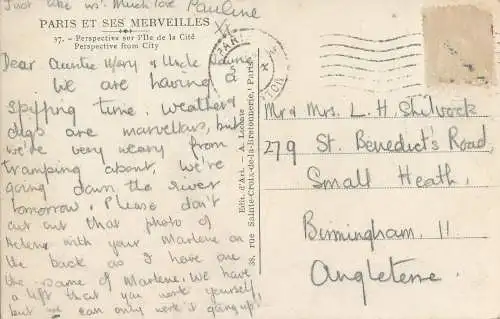 Just like us. Much love Pauline
PARIS ET SES MERVEILLES
37. - Perspective sur l'Ile de la Cité
Perspective from City
Dear Auntie Mary & Uncle
We are having a
spiffing time. Weather &
digs are marvellous, but
we're very weary from
tramping about. We're
going down the river
tomorrow. Please don't
cut out that photo of
Helene with your Marlene on
the back as I have one
the same of Marlene. We have
a lift that you work yourself
but we can only work it going up!
Edit. d'Art. A. Leconte
38, rue Sainte-Croix-de-la-Bretonnerie, Paris
PARIS
Mr and Mrs. L. H Shilvock
279 St. Benedict's Road,
Small Heath,
Birmingham. 11
Angleterre.